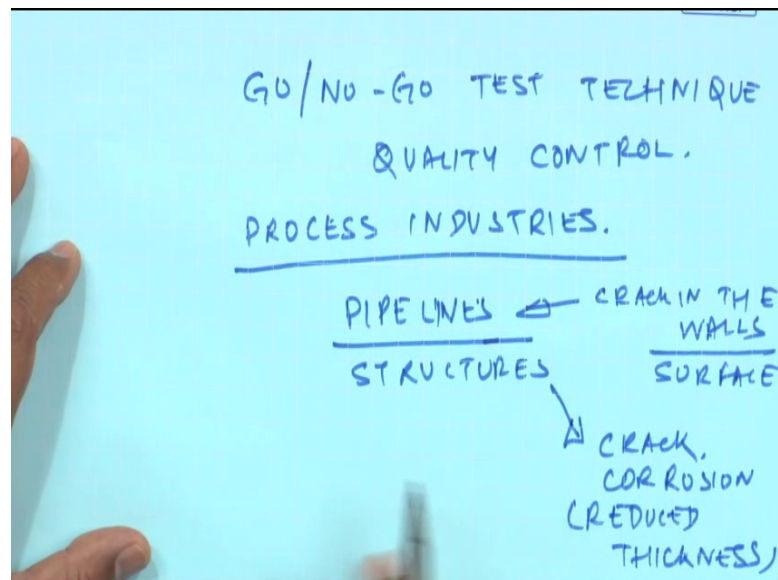 GO/NO-GO TEST TECHNIQUE
QUALITY CONTROL.
PROCESS INDUSTRIES.
PIPELINES
CRACK IN THE
WALLS
STRUCTURES
SURFACE
CRACK,
CORROSION
(REDUCED
THICKNESS,